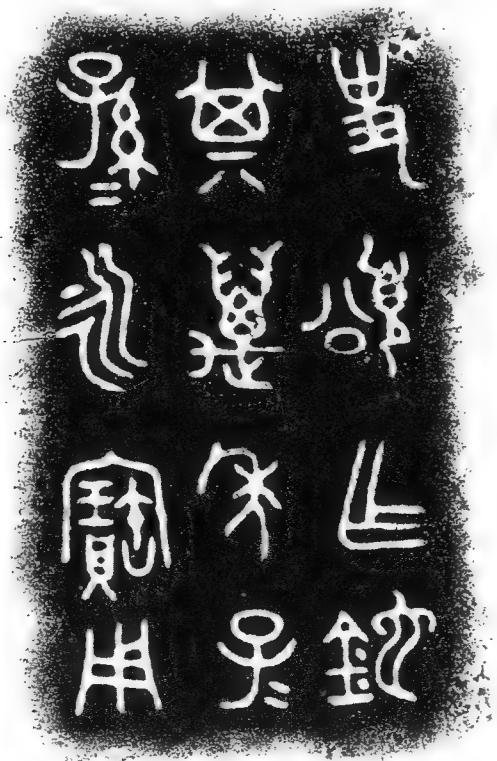 史頌乍鉈
其萬年子=
孫=永寶用